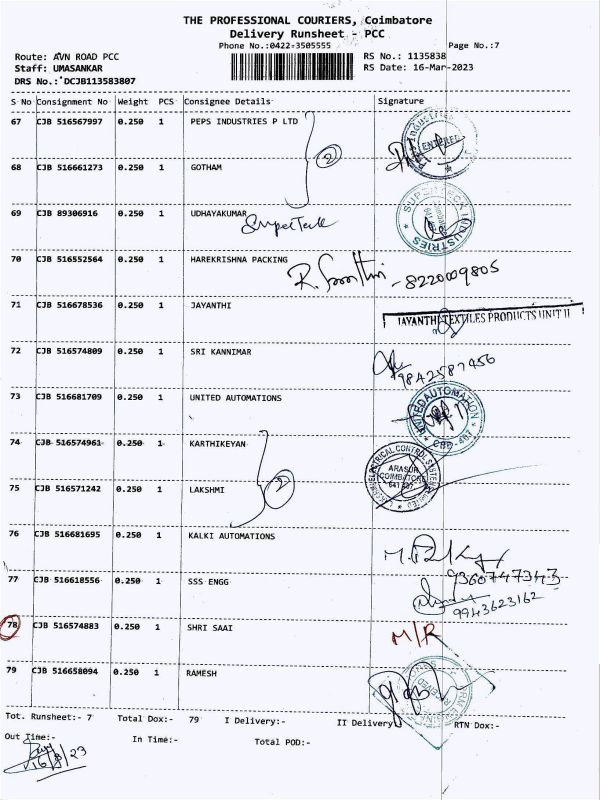 THE PROFESSIONAL COURIERS, Coimbatore
Delivery Runsheet - PCC
Phone No.:0422-3505555
Page No.:7
Route: AVN ROAD PCC
RS No.: 1135838
Staff: UMASANKAR
RS Date: 16-Mar-2023
DRS No.: DCJB113583807
S No Consignment No Weight PCS Consignee Details Signature
67 CJB 516567997 0.250 1 PEPS INDUSTRIES P LTD
ENTERED
2
68 CJB 516661273 0.250 1 GOTHAM
69 CJB 89306916 0.250 1 UDHAYAKUMAR
SuperTeck
SUPERTECK INDUSTRIES
70 CJB 516552564 0.250 1 HAREKRISHNA PACKING
-8220009805
71 CJB 516678536 1 JAYANTHI
JAYANTHI TEXTILES PRODUCTS UNIT II
72 CJB 516574809 0.250 1 SRI KANNIMAR
9842587456
73 CJB 516681709 0.250 1 UNITED AUTOMATIONS
UNITED AUTOMATION
74 CJB 516574961 0.250 1 KARTHIKEYAN
ELECTRICAL CONTROL SYSTEM
ARASUR
COIMBATORE
2
75 CJB 516571242 0.250 1 LAKSHMI
76 CJB 516681695 0.250 1 KALKI AUTOMATIONS
9360747343
77 CJB 516618556 0.250 1 SSS ENGG
9943623162
78 CJB 516574883 0.250 1 SHRI SAAI
M/R
79 CJB 516658094 0.250 1 RAMESH
Tot. Runsheet:- 7 Total Dox:- 79 I Delivery:- II Delivery: RTN Dox:-
Out Time:- In Time:- Total POD:-
16/3/23